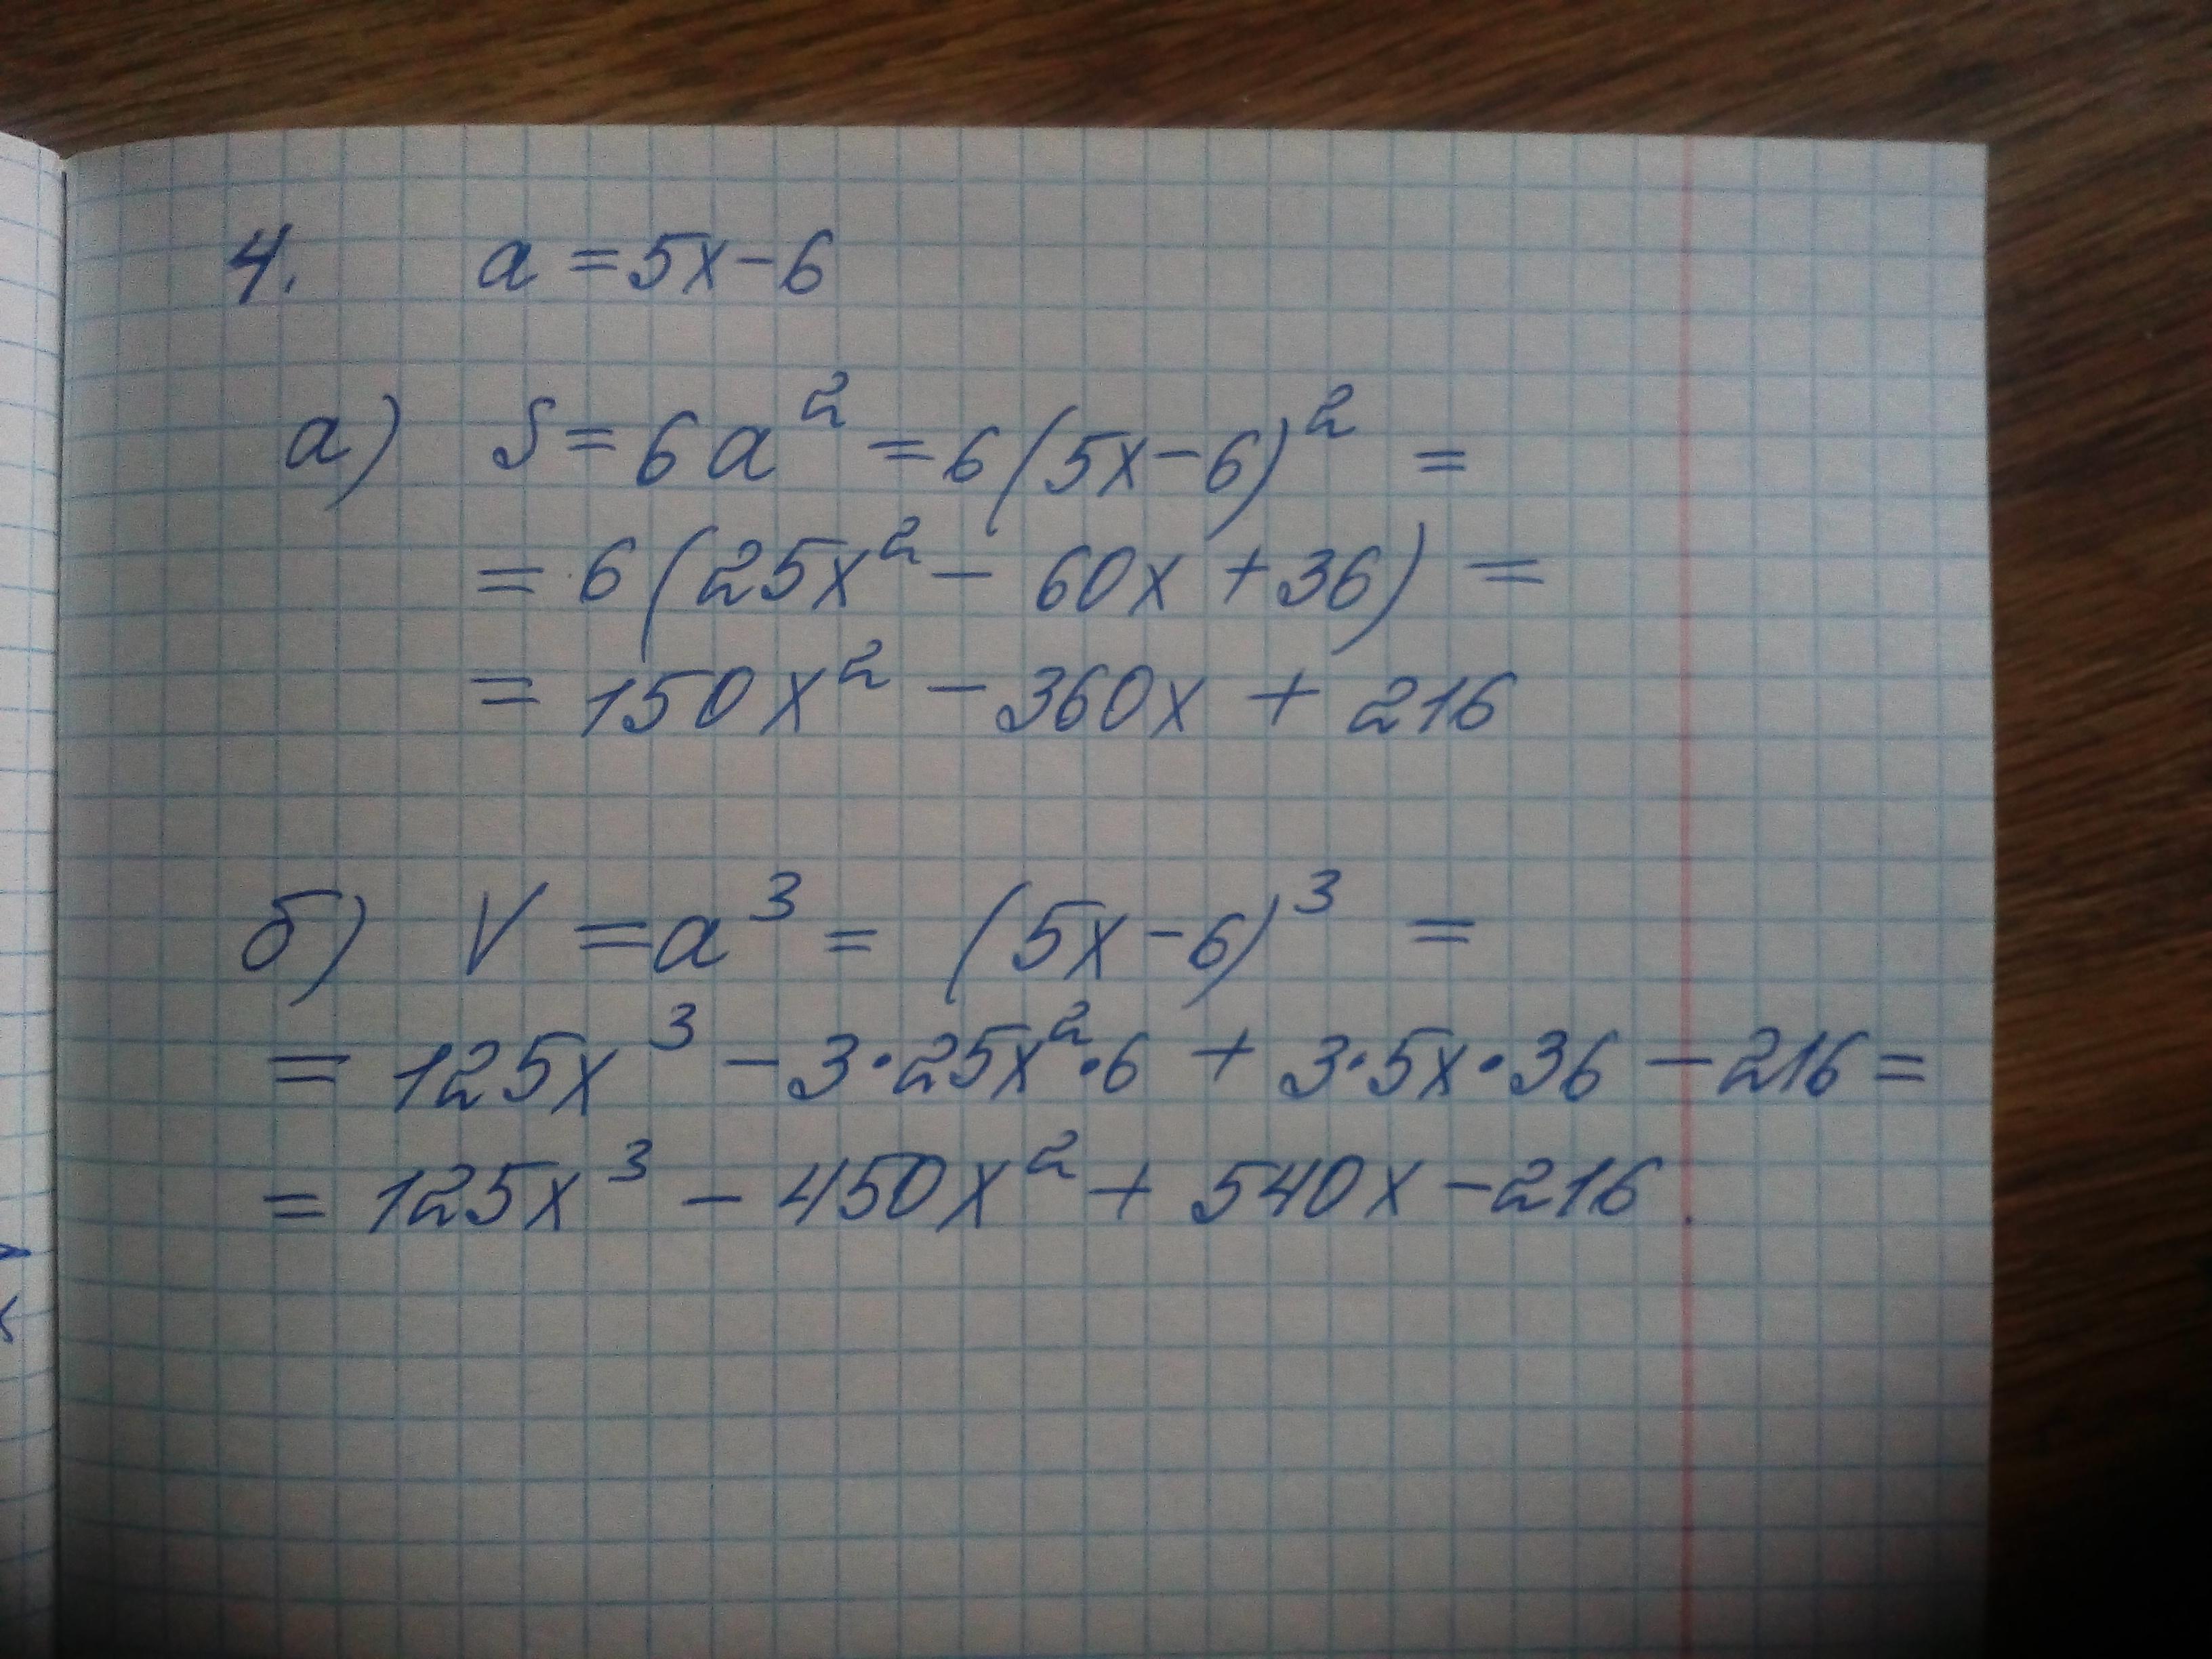 4. a = 5x - 6
а) S = 6a² = 6(5x - 6)² =
= 6(25x² - 60x + 36) =
= 150x² - 360x + 216
б) V = a³ = (5x - 6)³ =
= 125x³ - 3·25x²·6 + 3·5x·36 - 216 =
= 125x³ - 450x² + 540x - 216.